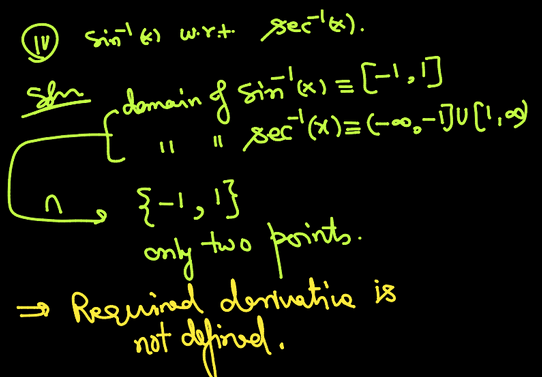 (iv) sin⁻¹(x) w.r.t. sec⁻¹(x).
Soln domain of sin⁻¹(x) ≡ [-1, 1]
" " sec⁻¹(x) ≡ (-∞, -1] ∪ [1, ∞)
∩ {-1, 1}
only two points.
⇒ Required derivative is
not defined.